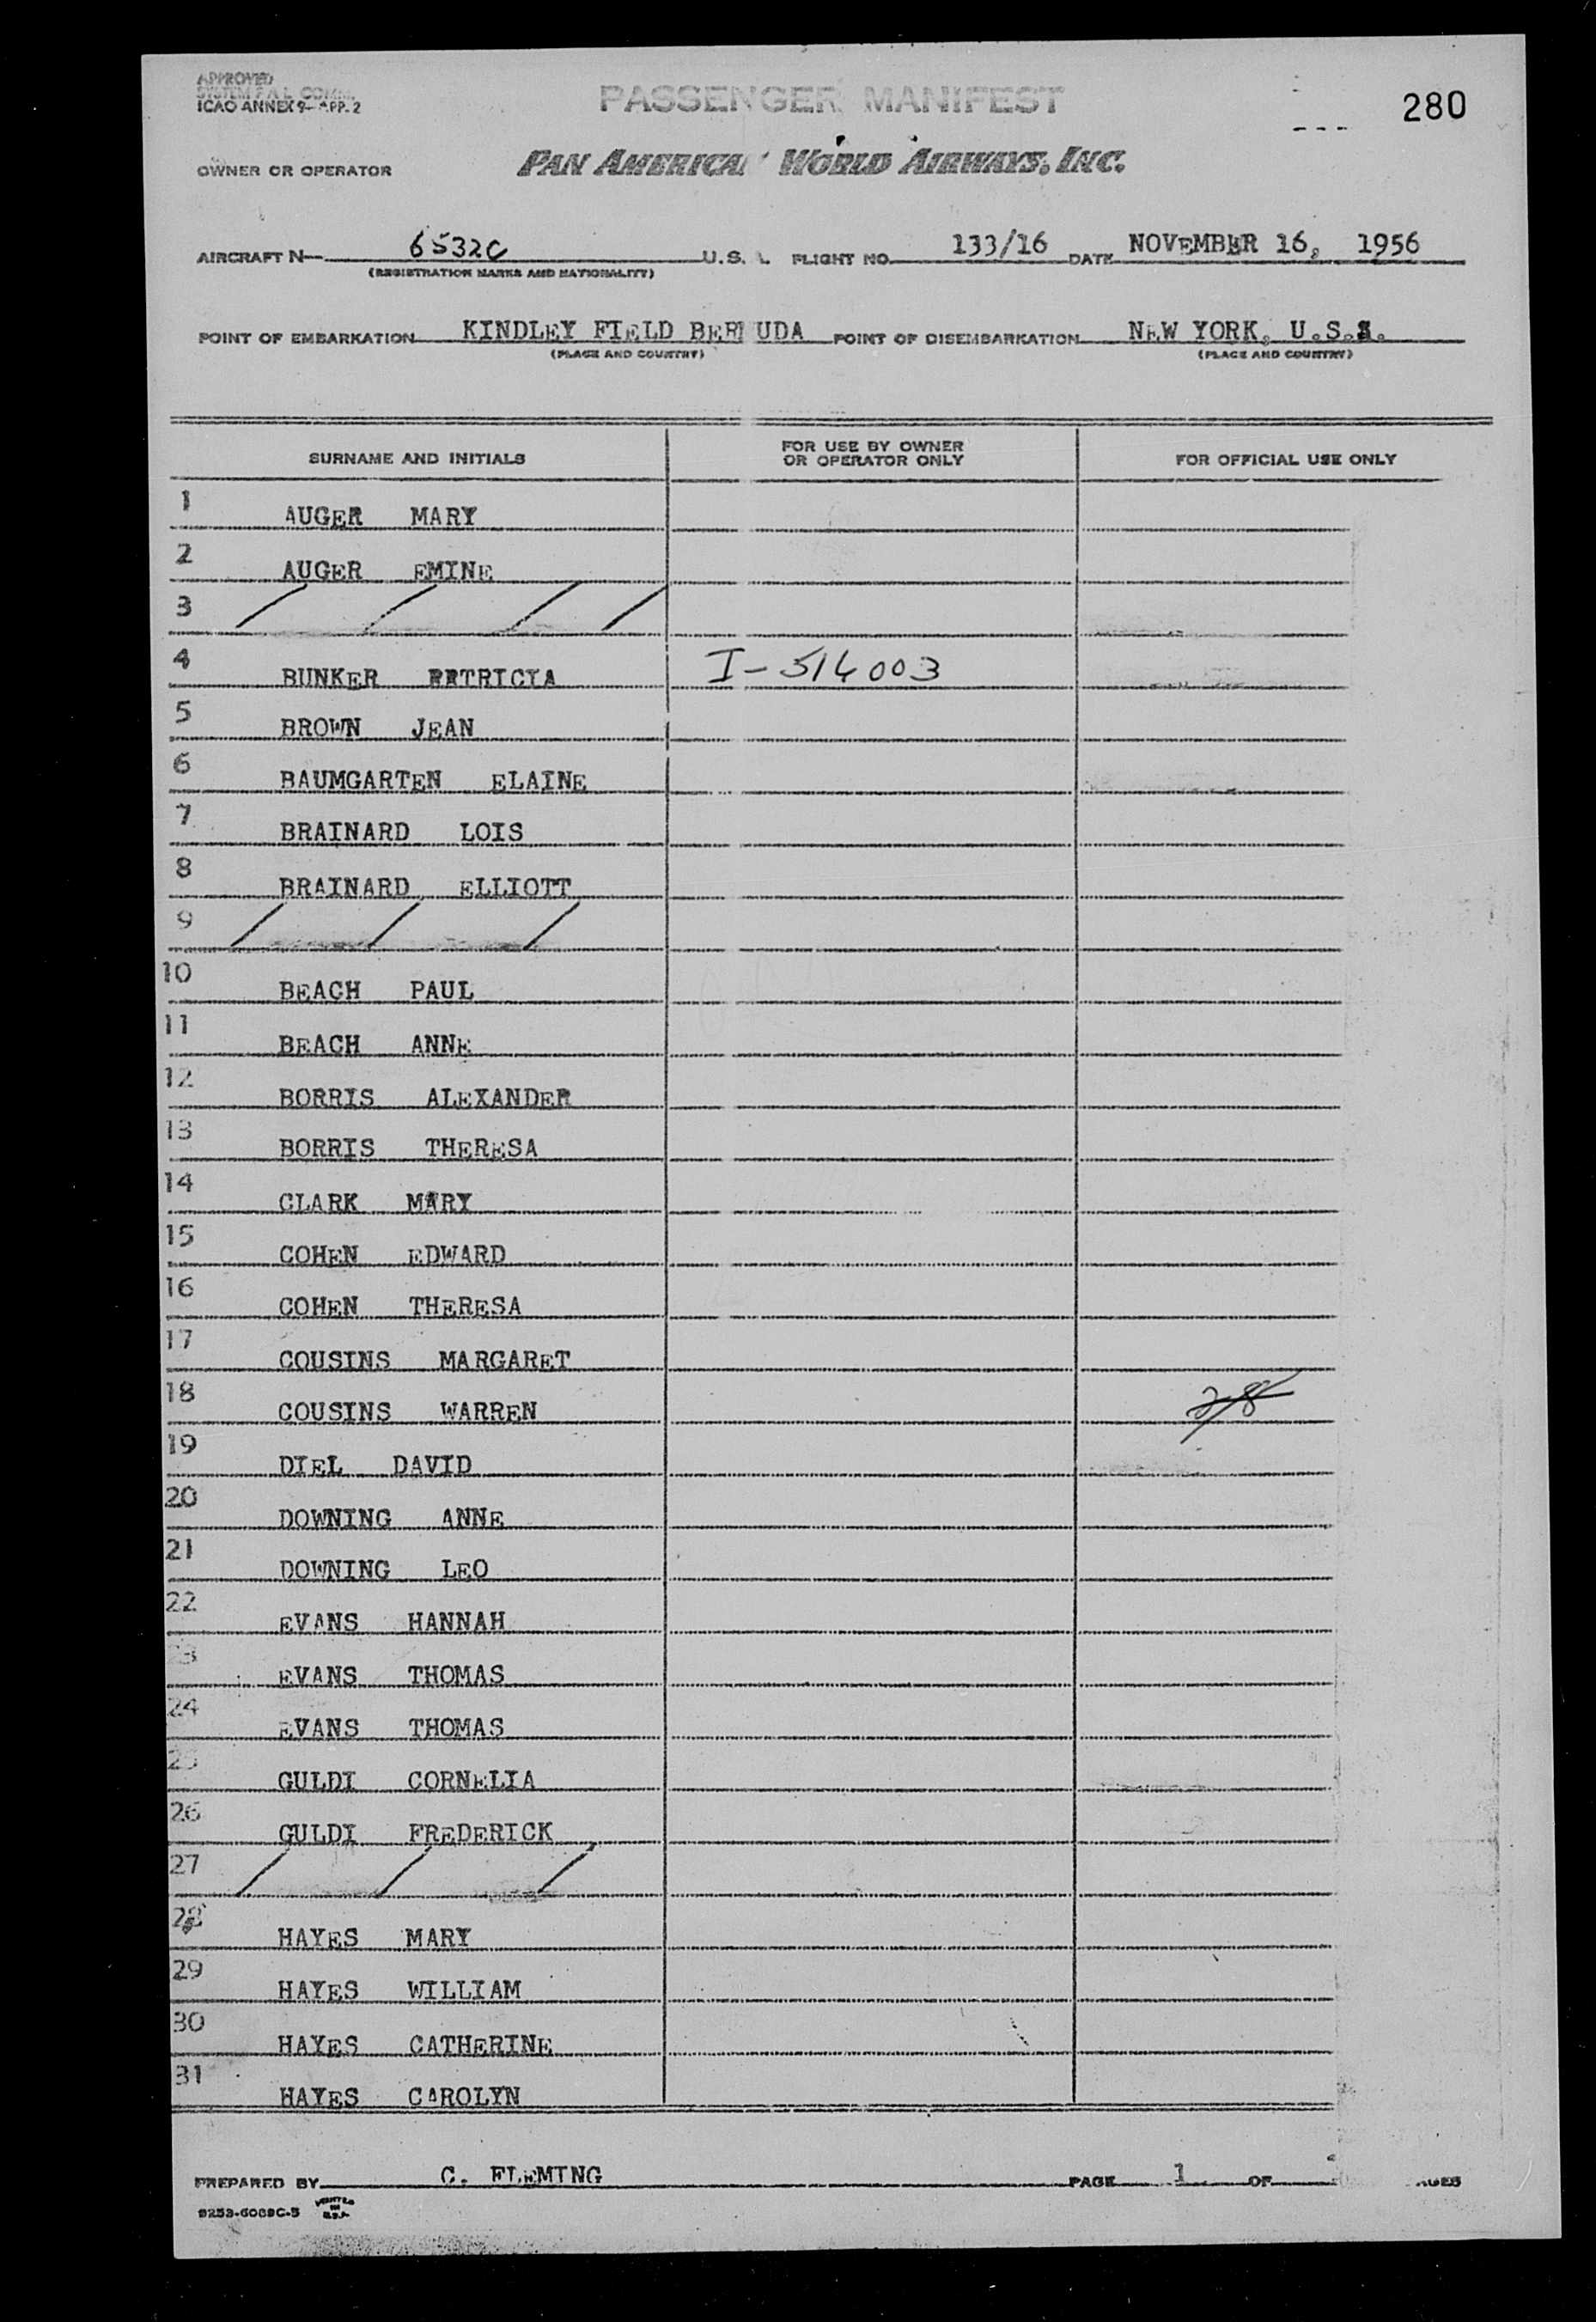 APPROVED
SYSTEM F.A.L. COMM.
ICAO ANNEX 9- APP. 2
PASSENGER MANIFEST
280
OWNER OR OPERATOR
PAN AMERICA WORLD AIRWAYS, INC.
AIRCRAFT N- 6532C U.S. A. FLIGHT NO. 133/16 DATE NOVEMBER 16, 1956
(REGISTRATION MARKS AND NATIONALITY)
POINT OF EMBARKATION KINDLEY FIELD BER UDA POINT OF DISEMBARKATION NEW YORK, U.S.A.
(PLACE AND COUNTRY) (PLACE AND COUNTRY)
SURNAME AND INITIALS FOR USE BY OWNER OR OPERATOR ONLY FOR OFFICIAL USE ONLY
1 AUGER MARY
2 AUGER EMINE
3 / / / /
4 BUNKER PATRICIA I-514003
5 BROWN JEAN
6 BAUMGARTEN ELAINE
7 BRAINARD LOIS
8 BRAINARD ELLIOTT
9 / / /
10 BEACH PAUL
11 BEACH ANNE
12 BORRIS ALEXANDER
13 BORRIS THERESA
14 CLARK MARY
15 COHEN EDWARD
16 COHEN THERESA
17 COUSINS MARGARET
18 COUSINS WARREN
19 DIEL DAVID
20 DOWNING ANNE
21 DOWNING LEO
22 EVANS HANNAH
23 EVANS THOMAS
24 EVANS THOMAS
25 GULDI CORNELIA
26 GULDI FREDERICK
27 / / /
28 HAYES MARY
29 HAYES WILLIAM
30 HAYES CATHERINE
31 HAYES CAROLYN
PREPARED BY C. FLEMING PAGE 1 OF
9253-6089C-5 PRINTED IN U.S.A.